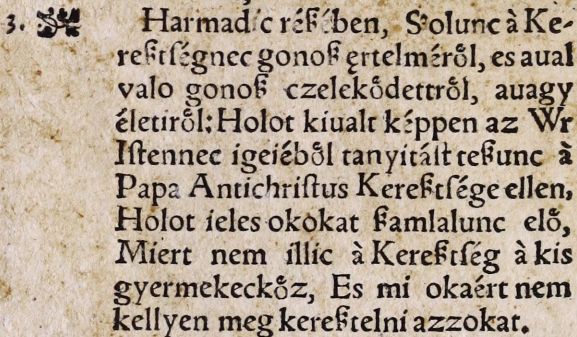 3. Harmadic réßében, Szolunc à Ke-
reßtſégnec gonoß ęrtelméről, es aual
valo gonoß czelekődettről, auagy
életiről: Holot kiualt képpen az Wr
Iſtennec igeiéből tanyitáſt teßunc à
Papa Antichriſtus Kereßtſége ellen,
Holot ieles okokat ßamlalunc elő,
Miert nem illic à Kereßtſég à kis
gyermekeckőz, Es mi okaért nem
kellyen meg kereßtelni azzokat.